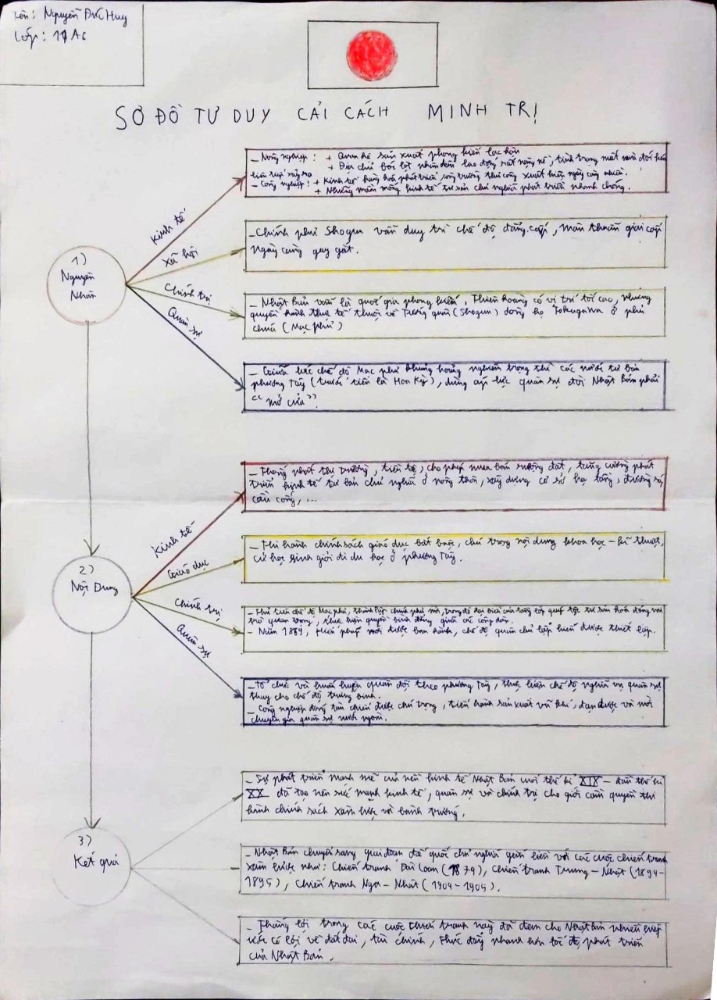 Tên: Nguyễn Đức Huy
Lớp: 11A6
SƠ ĐỒ TƯ DUY CẢI CÁCH MINH TRỊ
1)
Nguyên
Nhân
Kinh tế
- Nông nghiệp: + Quan hệ sản xuất phong kiến lạc hậu
+ Địa chủ bóc lột nhân dân lao động rất nặng nề, tình trạng mất mùa đói kém
liên tiếp xảy ra
- Công nghiệp: + Kinh tế hàng hóa phát triển, công trường thủ công xuất hiện ngày càng nhiều.
+ Những mầm mống kinh tế tư bản chủ nghĩa phát triển nhanh chóng.
Xã hội
- Chính phủ Shogun vẫn duy trì chế độ đẳng cấp, mâu thuẫn giai cấp
ngày càng gay gắt.
Chính trị
- Nhật Bản vẫn là quốc gia phong kiến. Thiên hoàng có vị trí tối cao, nhưng
quyền hành thực tế thuộc về Tướng quân (Shogun) dòng họ Tokugawa ở phủ
chúa (Mạc phủ)
Quân sự
- Giữa lúc chế độ Mạc phủ khủng hoảng nghiêm trọng thì các nước tư bản
phương Tây (trước tiên là Hoa Kỳ), dùng áp lực quân sự đòi Nhật Bản phải
"mở cửa".
2)
Nội Dung
Kinh tế
- Thống nhất thị trường, tiền tệ, cho phép mua bán ruộng đất, tăng cường phát
triển kinh tế tư bản chủ nghĩa ở nông thôn, xây dựng cơ sở hạ tầng, đường sá,
cầu cống, ...
Giáo dục
- Thi hành chính sách giáo dục bắt buộc, chú trọng nội dung khoa học - kĩ thuật,
cử học sinh giỏi đi du học ở phương Tây.
Chính trị
- Thủ tiêu chế độ Mạc phủ, thành lập chính phủ mới, trong đó đại biểu của tầng lớp quý tộc tư sản hóa đóng vai
trò quan trọng, thực hiện quyền bình đẳng giữa các công dân.
- Năm 1889, Hiến pháp mới được ban hành, chế độ quân chủ lập hiến được thiết lập.
Quân sự
- Tổ chức và huấn luyện quân đội theo phương Tây, thực hiện chế độ nghĩa vụ quân sự
thay cho chế độ trưng binh.
- Công nghiệp đóng tàu chiến được chú trọng, tiến hành sản xuất vũ khí, đạn dược và mời
chuyên gia quân sự nước ngoài.
3)
Kết quả
- Sự phát triển mạnh mẽ của nền kinh tế Nhật Bản cuối thế kỉ XIX - đầu thế kỉ
XX đã tạo nên sức mạnh kinh tế, quân sự và chính trị cho giới cầm quyền thi
hành chính sách xâm lược và bành trướng.
- Nhật Bản chuyển sang giai đoạn đế quốc chủ nghĩa gắn liền với các cuộc chiến tranh
xâm lược như: Chiến tranh Đài Loan (1874), Chiến tranh Trung - Nhật (1894-
1895), Chiến tranh Nga - Nhật (1904-1905).
- Thắng lợi trong các cuộc chiến tranh này đã đem cho Nhật Bản nhiều hiệp
ước có lợi về đất đai, tài chính, thúc đẩy nhanh hơn tốc độ phát triển
của Nhật Bản.